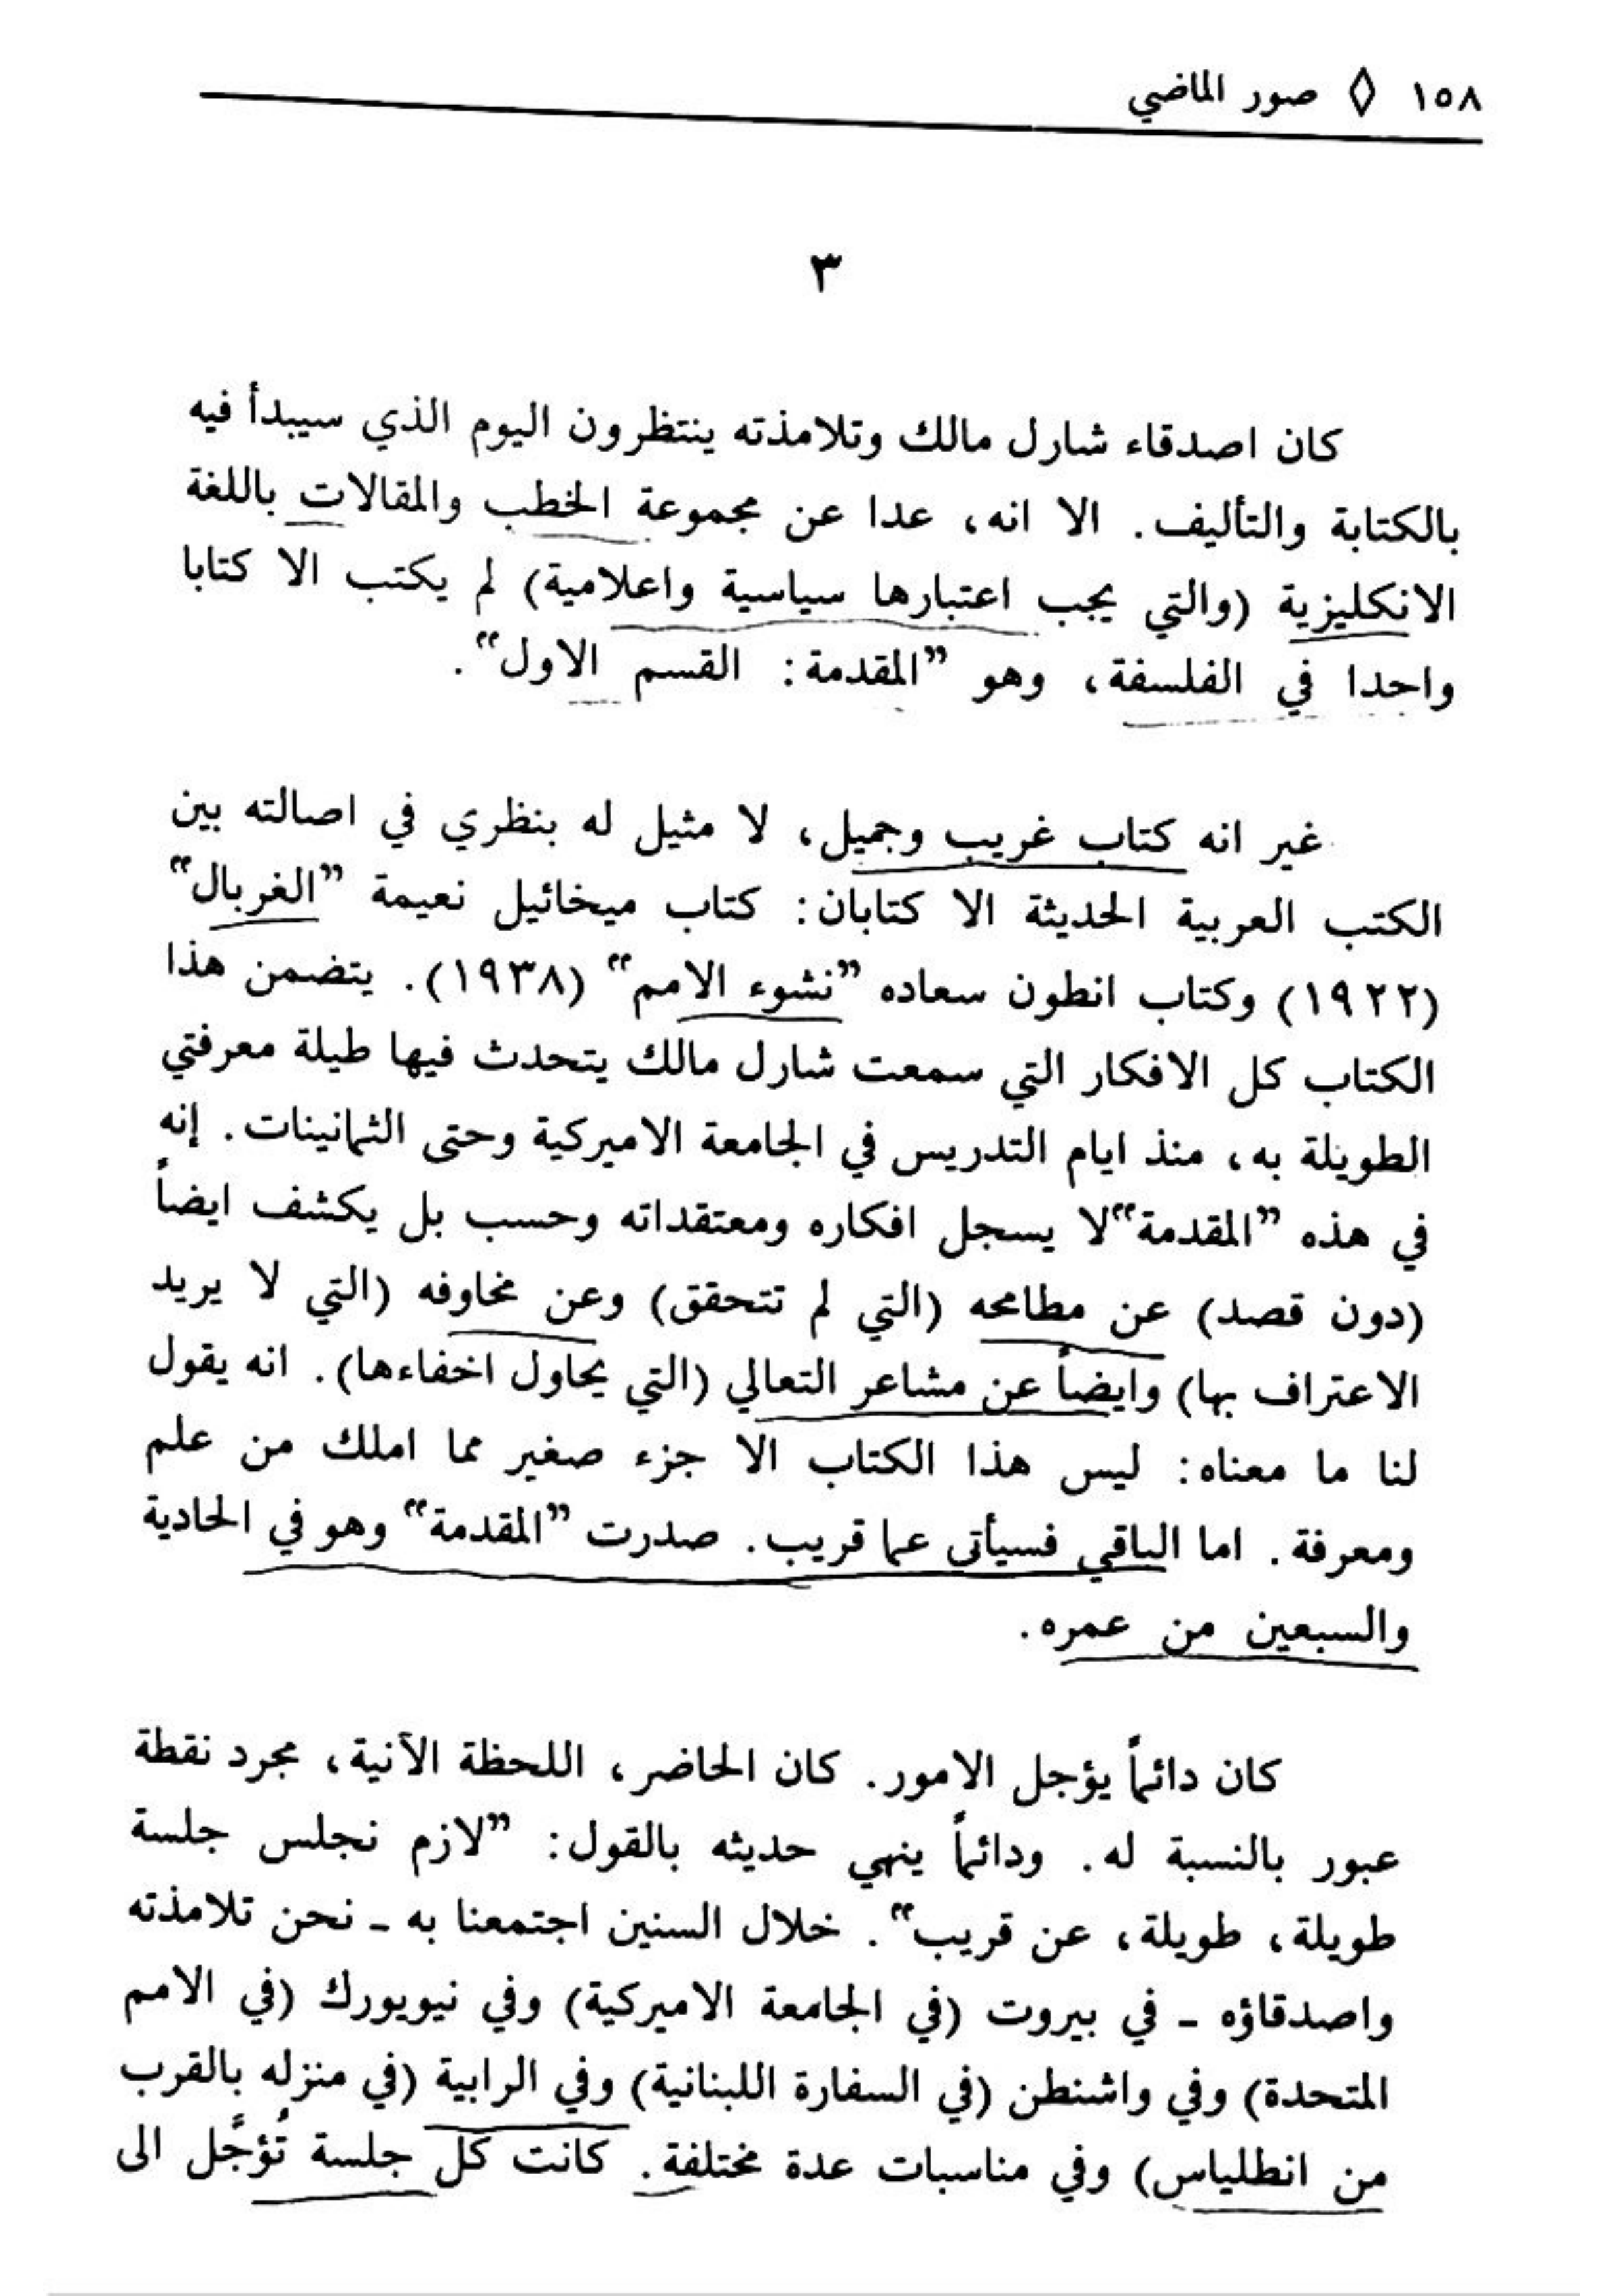 ١٥٨ ◊ صور الماضي
٣
كان اصدقاء شارل مالك وتلامذته ينتظرون اليوم الذي سيبدأ فيه
بالكتابة والتأليف. الا انه، عدا عن مجموعة الخطب والمقالات باللغة
الانكليزية (والتي يجب اعتبارها سياسية واعلامية) لم يكتب الا كتابا
واحدا في الفلسفة، وهو ”المقدمة: القسم الاول“.
غير انه كتاب غريب وجميل، لا مثيل له بنظري في اصالته بين
الكتب العربية الحديثة الا كتابان: كتاب ميخائيل نعيمة ”الغربال“
(١٩٢٢) وكتاب انطون سعاده ”نشوء الامم“ (١٩٣٨). يتضمن هذا
الكتاب كل الافكار التي سمعت شارل مالك يتحدث فيها طيلة معرفتي
الطويلة به، منذ ايام التدريس في الجامعة الاميركية وحتى الثمانينات. إنه
في هذه ”المقدمة“لا يسجل افكاره ومعتقداته وحسب بل يكشف ايضاً
(دون قصد) عن مطامحه (التي لم تتحقق) وعن مخاوفه (التي لا يريد
الاعتراف بها) وايضاً عن مشاعر التعالي (التي يحاول اخفاءها). انه يقول
لنا ما معناه: ليس هذا الكتاب الا جزء صغير مما املك من علم
ومعرفة. اما الباقي فسيأتي عما قريب. صدرت ”المقدمة“ وهو في الحادية
والسبعين من عمره.
كان دائماً يؤجل الامور. كان الحاضر، اللحظة الآنية، مجرد نقطة
عبور بالنسبة له. ودائماً ينهي حديثه بالقول: ”لازم نجلس جلسة
طويلة، طويلة، عن قريب“. خلال السنين اجتمعنا به ـ نحن تلامذته
واصدقاؤه ـ في بيروت (في الجامعة الاميركية) وفي نيويورك (في الامم
المتحدة) وفي واشنطن (في السفارة اللبنانية) وفي الرابية (في منزله بالقرب
من انطلياس) وفي مناسبات عدة مختلفة. كانت كل جلسة تُؤجَّل الى